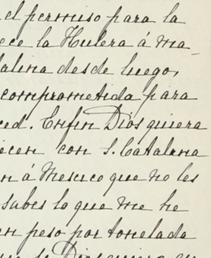 el permiso para la
ece la Hulera á ma-
alina desde luego,
comprometida para
ced. Enfin Dios quiera
icen con S. Catalina
n á Mexico que no les
sabes lo que me he
en peso por tonelada